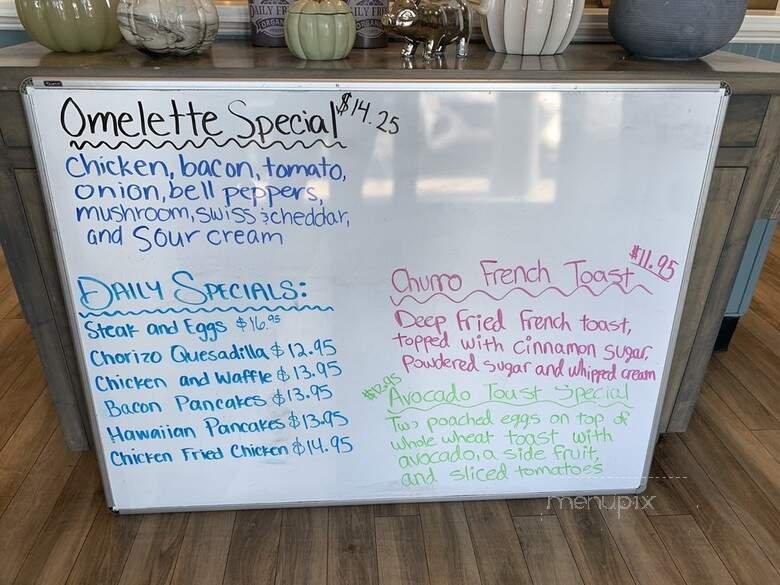 DAILY FR
ORGAN
DAILY FRE
ORGAN
Omelette Special $14.25
Chicken, bacon, tomato,
onion, bell peppers,
mushroom, swiss & cheddar,
and sour cream
DAILY SPECIALS:
Steak and Eggs $16.95
Chorizo Quesadilla $12.95
Chicken and Waffle $13.95
Bacon Pancakes $13.95
Hawaiian Pancakes $13.95
Chicken Fried Chicken $14.95
$11.95
Churro French Toast
Deep Fried French toast,
topped with cinnamon sugar,
powdered sugar and whipped cream
$12.95
Avocado Toast Special
Two poached eggs on top of
whole wheat toast with
avocado, a side fruit,
and sliced tomatoes
menupix